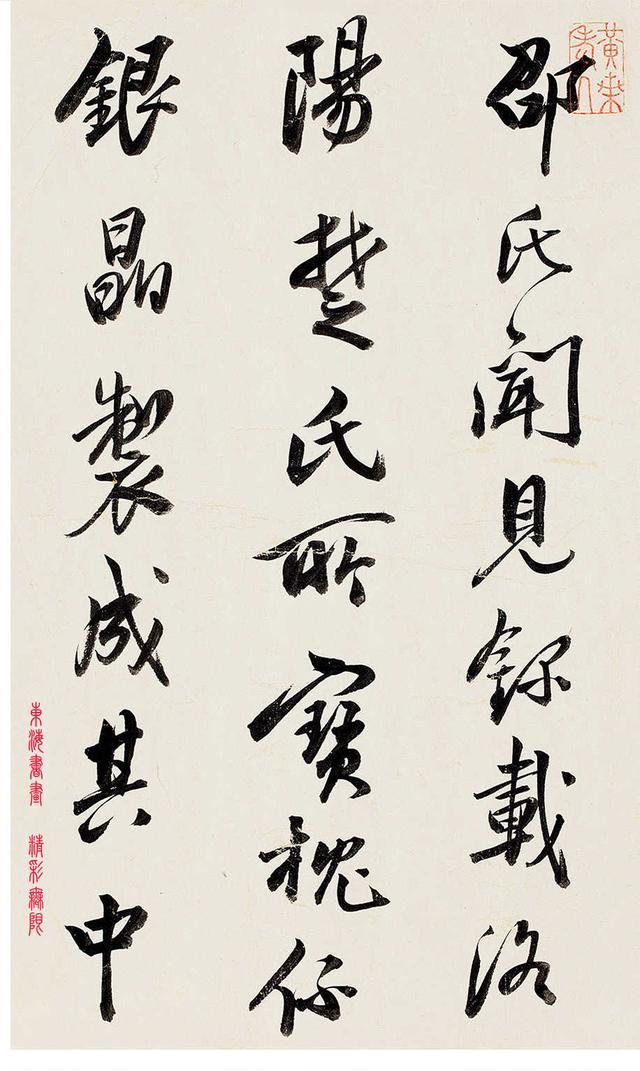 邵氏聞見錄載洛
陽楚氏所寶槐係
銀晶製成其中
東海書畫 精彩無限